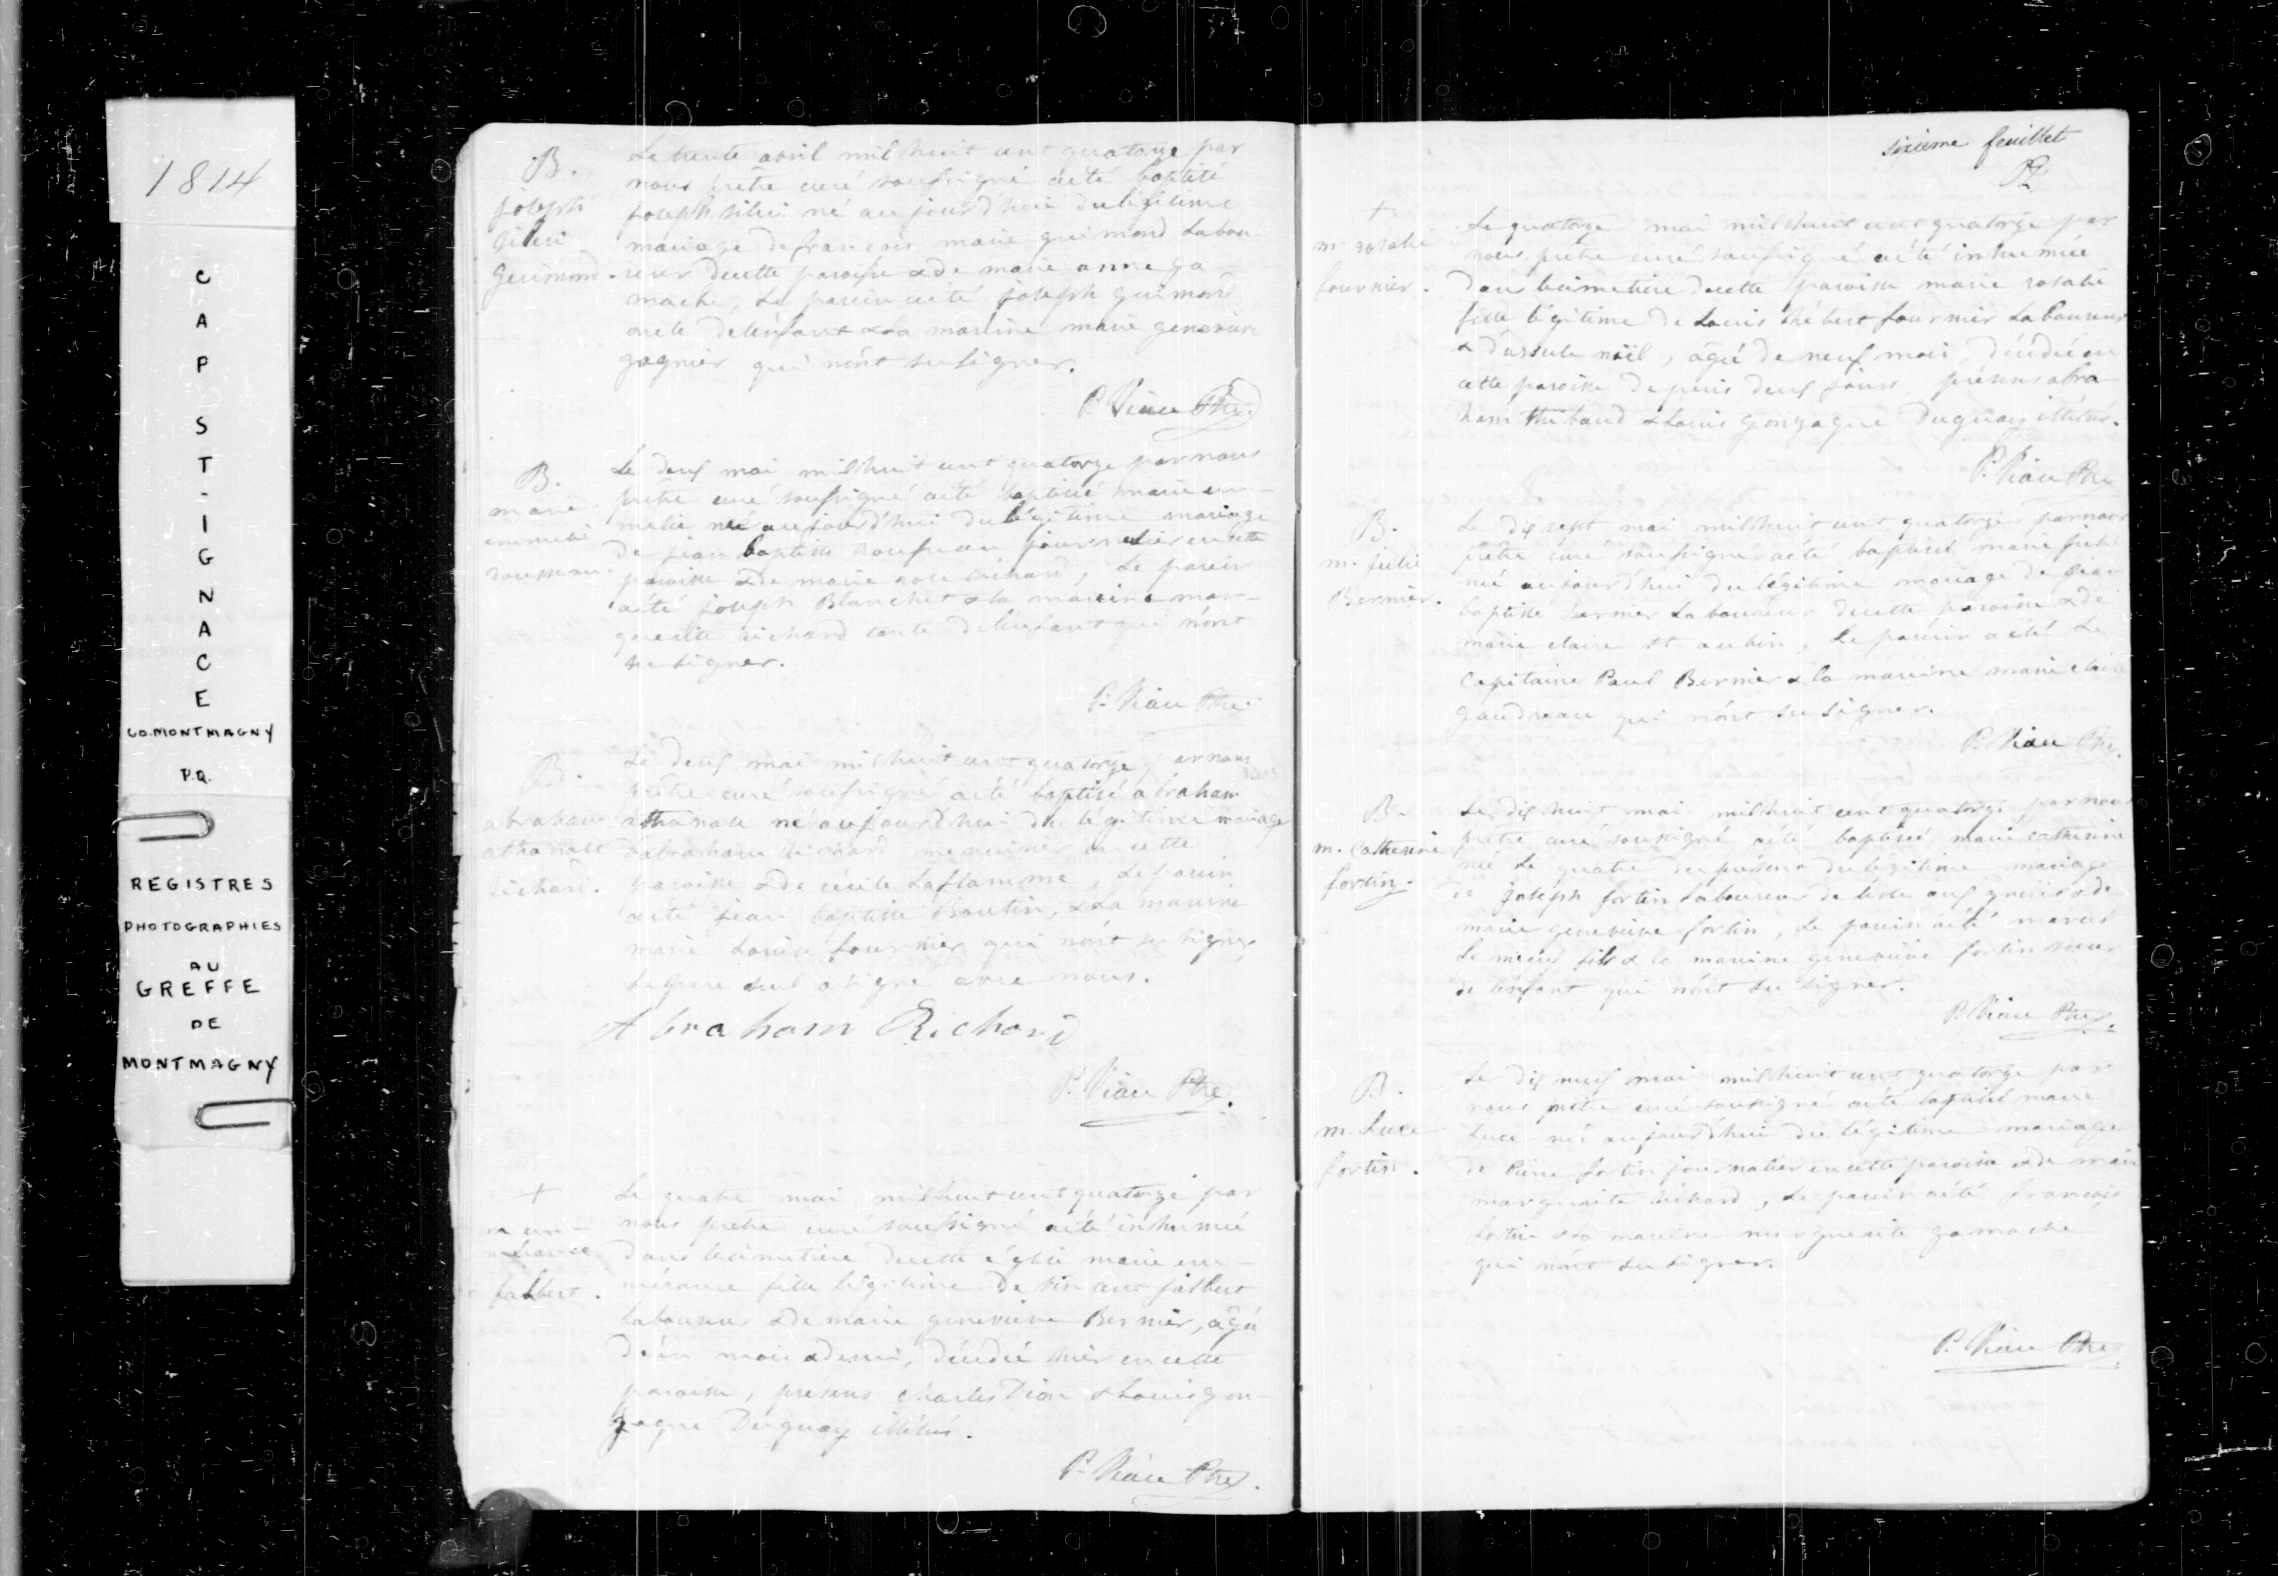 1814
CAP ST-IGNACE
CO. MONTMAGNY
P.Q.
REGISTRES
PHOTOGRAPHIES
AU
GREFFE
DE
MONTMAGNY
B.
joseph
guimond.
Le trente avril mil huit cent quatorze par
nous prêtre curé soussigné a été baptisé
joseph né aujourd'hui du légitime
mariage de francois marie guimond labou-
reur de cette paroisse & de marie anne ga-
mache, Le parein a été joseph guimond
oncle de l'enfant & la mareine marie genevieve
gagnier qui n'ont su signer.
P. Viau Ptre
B.
marie
emmelie
rousseau.
Le deux mai mil huit cent quatorze par nous
prêtre curé soussigné a été baptisée marie em-
melie née aujourd'hui du légitime mariage
de jean baptiste rousseau journalier en cette
paroisse & de marie rose richard, Le parein
a été joseph Blanchet & la mareine mar-
guerite richard tante de l'enfant qui n'ont
su signer.
P. Viau Ptre
B.
abraham
athanase
richard.
Le deux mai mil huit cent quatorze par nous
prêtre curé soussigné a été baptisé abraham
athanase né aujourd'hui du légitime mariage
d'abraham richard menuisier en cette
paroisse & de cécile Laflamme, Le parein
a été jean baptiste Boutin, & la mareine
marie Louise fournier qui n'ont su signer
Le pere seul a signé avec nous.
Abraham Richard
P. Viau Ptre.
+
m. em-
mérance
jalbert.
Le quatre mai mil huit cent quatorze par
nous prêtre curé soussigné a été inhumée
dans le cimetiere de cette église marie em-
mérance fille légitime de vincent jalbert
laboureur & de marie genevieve Bernier, âgée
d'un mois & demi, décédée hier en cette
paroisse, présens charles Dion & Louis gon-
zague Duguay illétrés.
P. Viau Ptre.
sixieme feuillet
+
m. rosalie
fournier.
Le quatorze mai mil huit cent quatorze par
nous prêtre curé soussigné a été inhumée
dans le cimetiere de cette paroisse marie rosalie
fille légitime de Louis fournier Laboureur
& d'ursule noël, âgée de neuf mois, décédée en
cette paroisse depuis deux jours présens abra-
ham thibaud & Louis gonzague Duguay illétrés.
P. Viau Ptre
B.
m. julie
Bernier.
Le dix sept mai mil huit cent quatorze par nous
prêtre curé soussigné a été baptisée marie julie
née aujourd'hui du légitime mariage de jean
baptiste bernier Laboureur de cette paroisse & de
marie claire st aubin, Le parein a été Le
Capitaine Paul Bernier & la mareine marie claire
gaudreau qui n'ont su signer.
P. Viau Ptre.
B.
m. Catherine
fortin.
Le dix huit mai mil huit cent quatorze par nous
prêtre curé soussigné a été baptisée marie catherine
née Le quatre du présent du légitime mariage
de joseph fortin Laboureur de l'isle aux grues & de
marie genevieve fortin, Le parein a été
Le mieux fils & la mareine genevieve fortin soeur
de l'enfant qui n'ont su signer.
P. Viau Ptre.
B.
m. Luce
fortin.
Le dix neuf mai mil huit cent quatorze par
nous prêtre curé soussigné a été baptisée marie
Luce née aujourd'hui du légitime mariage
de Pierre fortin journalier en cette paroisse & de marie
marguerite richard, Le parein a été francois
fortin & la mareine marguerite gamache
qui n'ont su signer.
P. Viau Ptre.